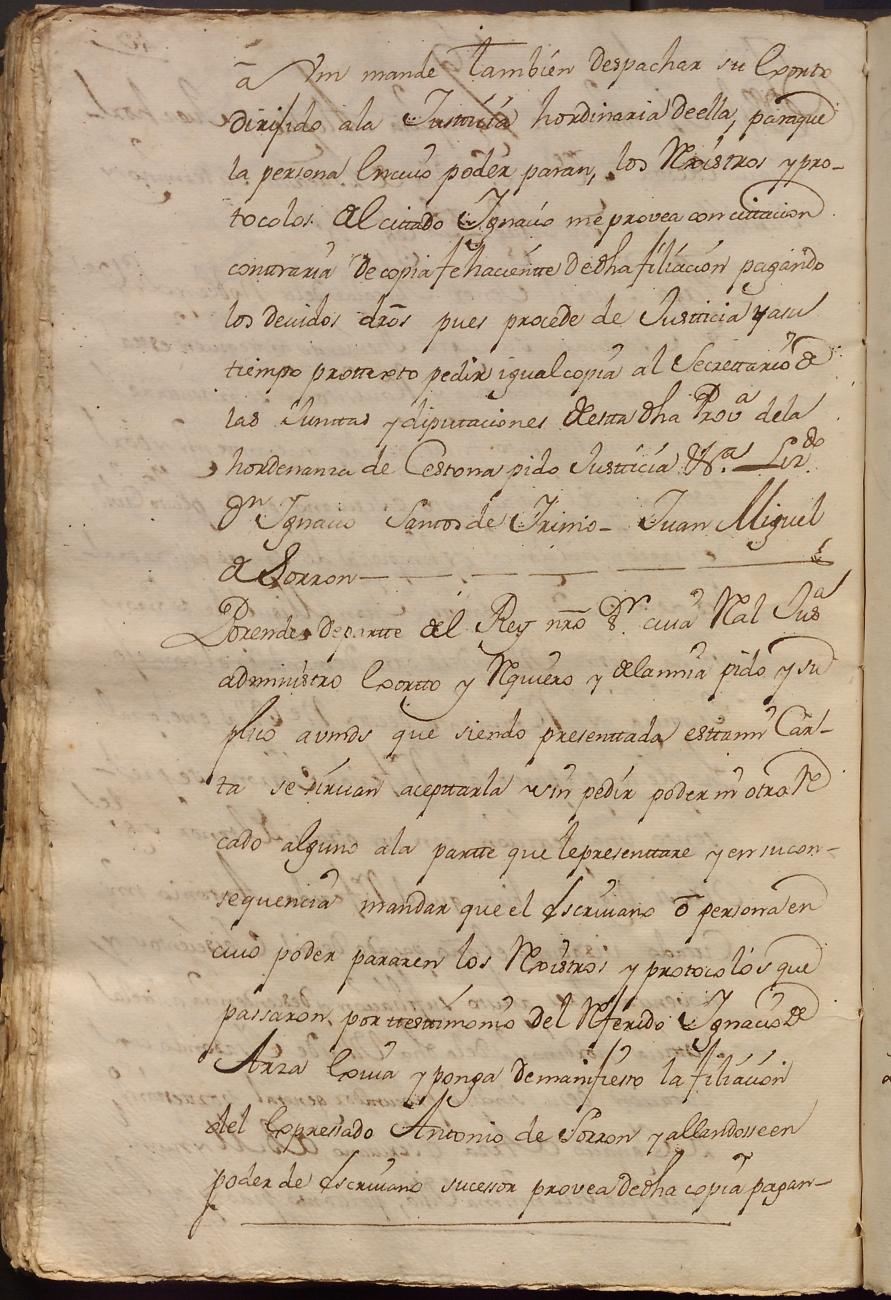 ã Vm mande tambien despachar su Exortto
dirijido ala Justticia hordinaria deella, paraque
la persona En cuio poder paran, los Rexistros y pro-
tocolos del cittado Ygnacio me provea con cittacion
conttraria de copia fehaciente de dha filiacion pagando
los devidos drõs pues procede de Justticia y asu
tiempo prottexto pedir igual copia al Secrettario de
las Junttas y diputaciones de estta dha Prov.ª dela
hordenanza de Cestona pido Justticia &.ª Liz.do
Dn Ygnacio Santos de Yrinio- Juan Miguel
de Sorron
Porende departte del Rey nrõ Sr. cuia Real Jus.ª
administro Exortto y Rquiero y delamia pido y su
plico avmds que siendo presenttada estta mi Car-
ta se sirvan acepttarla sin pedir poder ni otro Re
cado alguno ala partte que lepresenttare y en su con-
sequencia mandar que el Escrivano õ persona en
cuio poder pararen los Rexistros y protocolos que
passaron por testtimonio del Rferido Ygnacio de
Arza Exiva y ponga demanifiesto la filiacion
del Expressado Antonio de Sorron y allandosse en
poder de Escrivano sucessor provea de dha copia pagan-